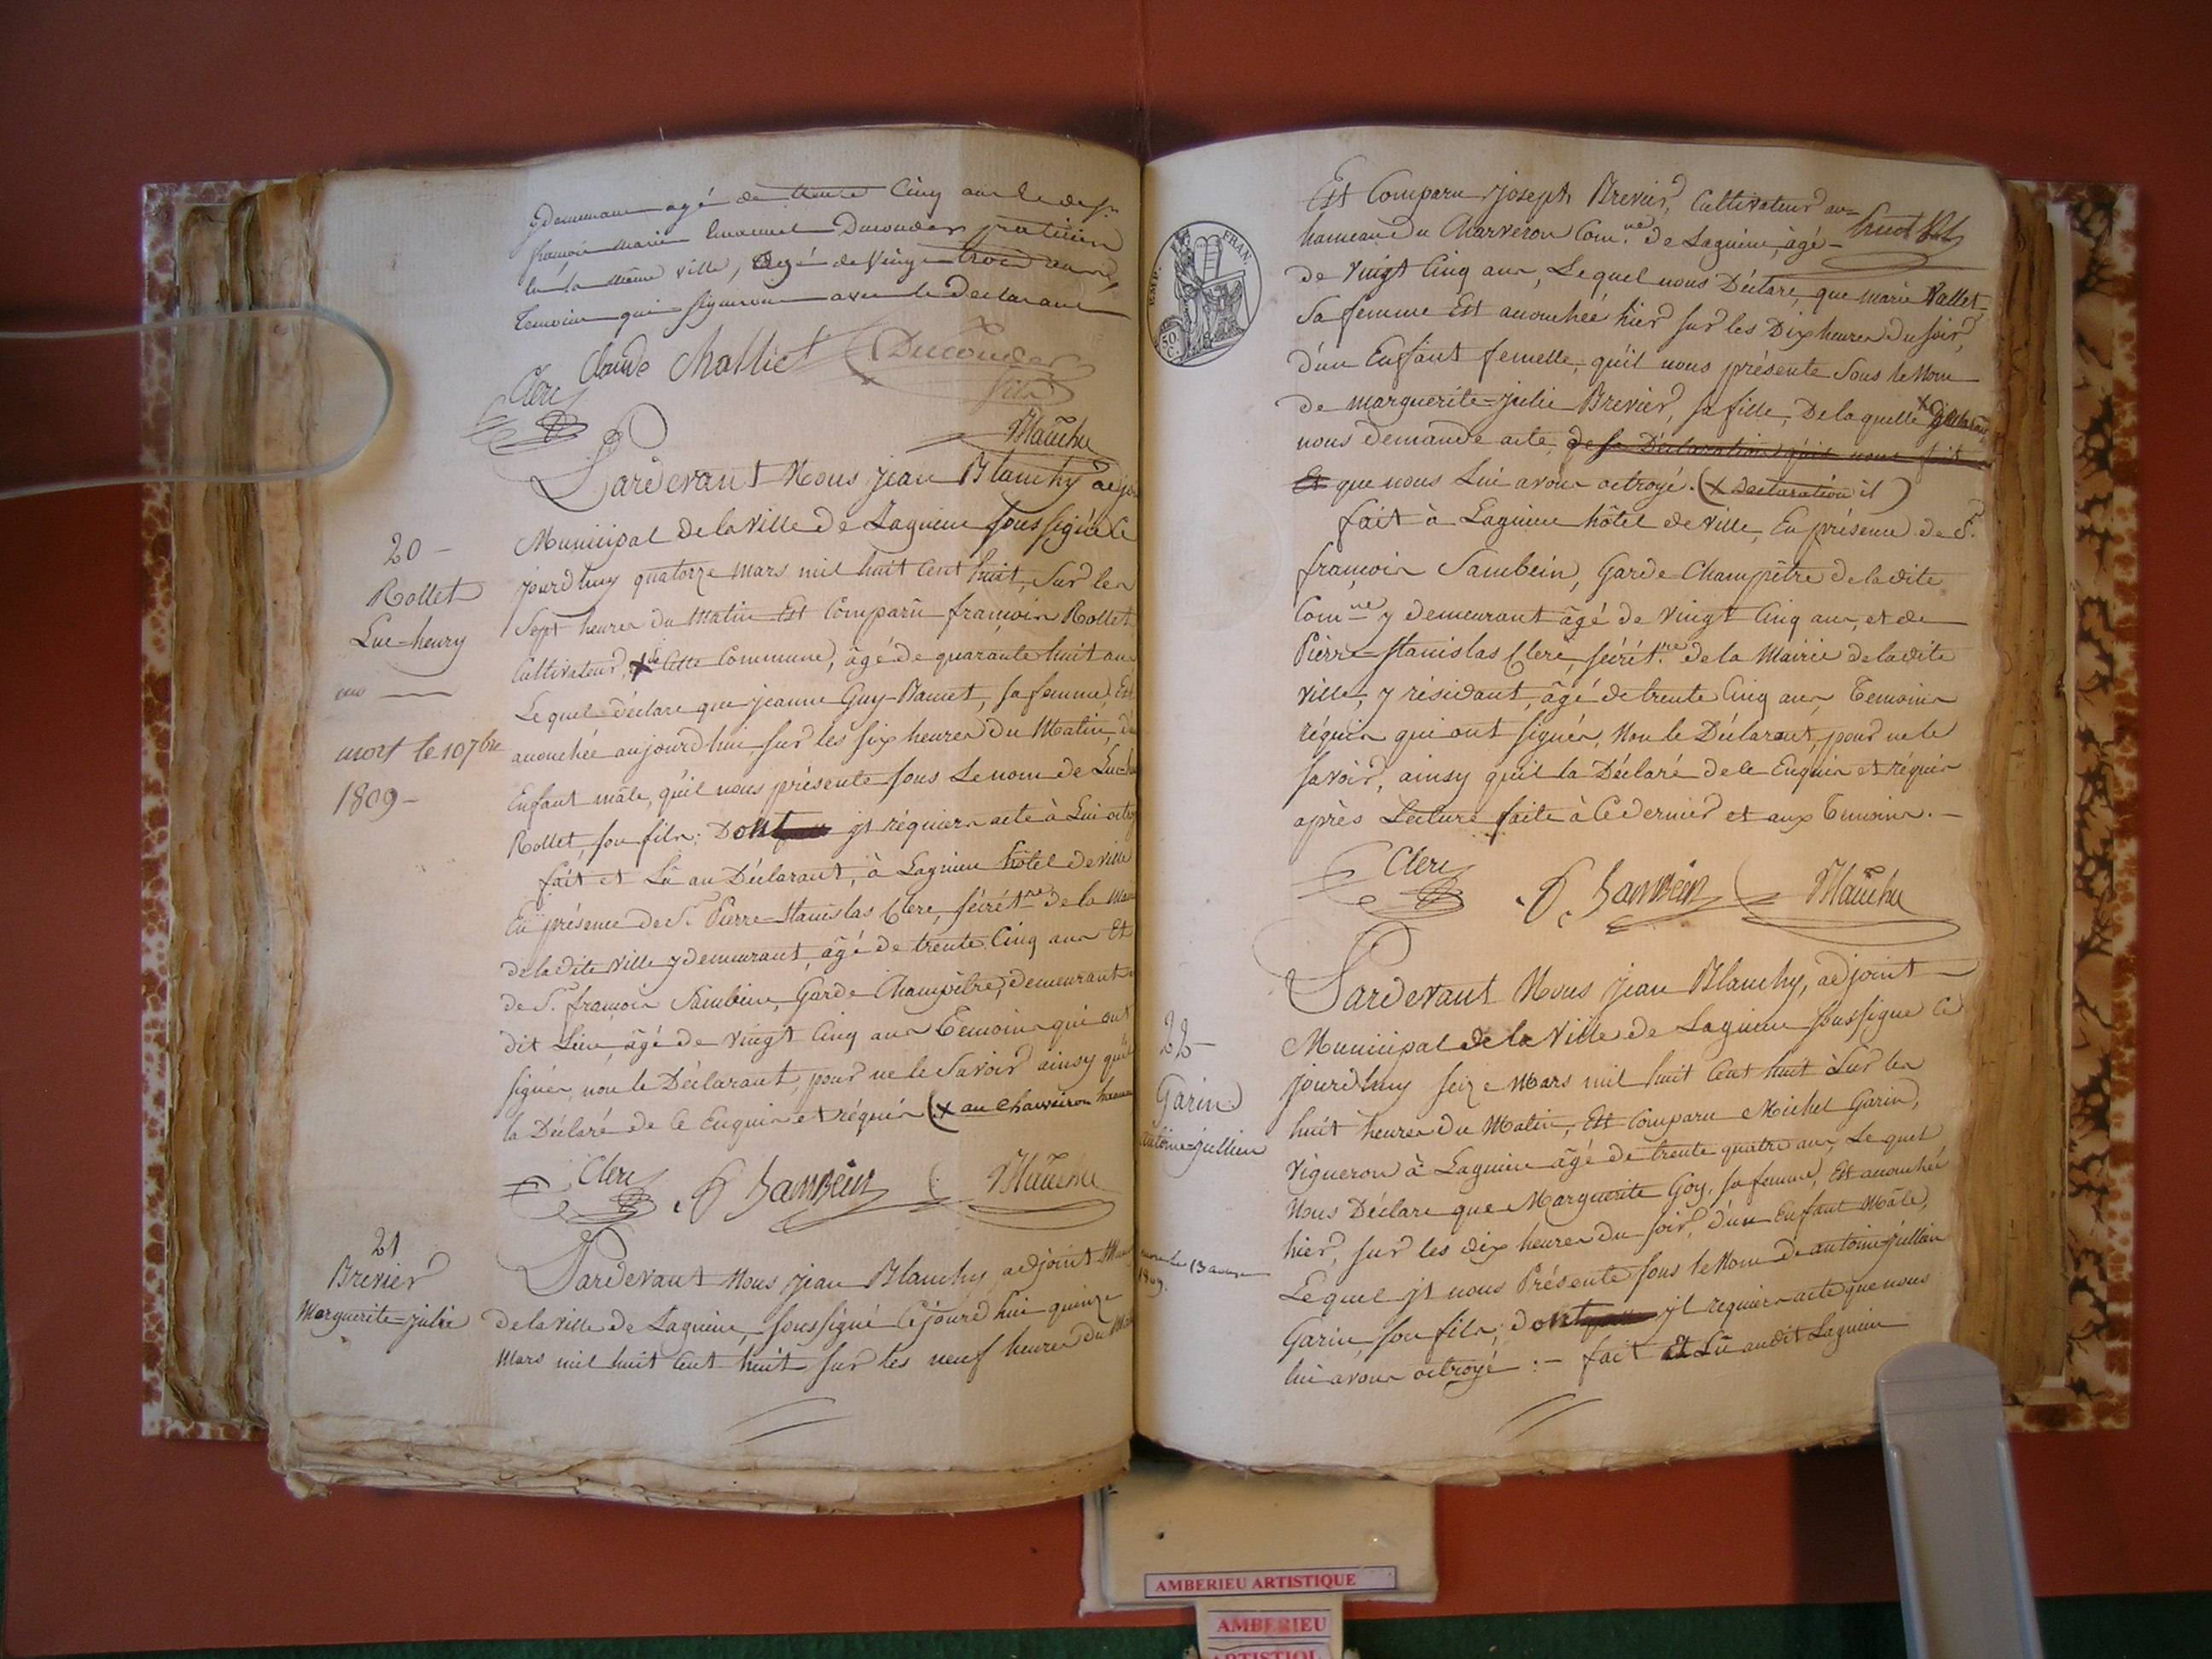 ydemeurant agé de trente Cinq ans le des.r
françois marie Emanuel Ducouder praticien
en la même ville, agé de vingt trois ans,
Temoins qui signeront avec le declarant
Claude Challiet Ducouder
fils
Clerc
Blanchy
Pardevant Nous jean Blanchy adjo
20 -
Rollet
Luc=henry
mort le 10 7bre
1809 -
Municipal de la ville de Lagnieu soussigné Ce
jourdhuy quatorze mars mil huit Cent huit, sur les
Sept heures du matin Est Comparû françois Rollet,
Cultivateur, x de Cette Commune, âgé de quarante huit ans
Lequel déclare que jeanne Guy-Bamet, sa femme, Est
accouchée aujourdhui sur les six heures du Matin, d'u
Enfant mâle, qu'il nous présente sous Le nom de Luc-he
Rollet, son fils; Dont yl réquiers acte à Lui octroy
fait et Lû au Déclarant, à Lagnieu hôtel de ville
En présence de S.r Pierre-Stanislas Clerc, sécrét.re de la Mai
de la dite ville y demeurant, âgé de trente Cinq ans Et
de S.r françois Sambein, Garde Champêtre, demeurant
dit Lieu, âgé de vingt Cinq ans Temoins qui ont
signés, non le Déclarant, pour ne le Savoir ainsy qu'il
la Déclaré de Ce Enquis et réquis (x au Charveiron hameau
Clerc f Sambein Blanchy
21
Brevier
Marguerite=julie
Pardevant Nous jean Blanchy adjoint Mun
de la ville de Lagnieu, soussigné Cejourdhui quinze
Mars mil huit Cent huit sur les neuf heures du Mat
EMP. FRAN.
50
C.
Est Comparu joseph Brevier, Cultivateur au=
hameau du Charveron Com.ne de Lagnieu, âgé -
de vingt Cinq ans, Lequel nous Déclare, que marie Vallet
Sa femme Est accouchée hier sur les Dix heures du soir,
d'un Enfant femelle, qu'il nous présente Sous le Nom
de marguerite=julie Brevier, sa fille, De laquelle x
nous demande acte, de sa Déclaration qu'il nous fait
Et que nous Lui avons octroyé. (x Declaration il)
fait à Lagnieu hôtel de ville, En présence de S.r
françois Sambein, Garde Champêtre de la dite
Com.ne y demeurant âgé de vingt Cinq ans, et de
Pierre-Stanislas Clerc, sécrét.re de la Mairie de la dite
ville, y résidant, âgé de trente Cinq ans Temoins
réquis qui ont signés, Non le Déclarant, pour ne le
savoir, ainsy qu'il la Déclaré de Ce Enquis et réquis
après Lecture faite à Ce dernier et aux Temoins. -
Clerc f Sambein Blanchy
Pardevant Nous jean Blanchy, adjoint
22 -
Garin
antoine=jullien
1809.
Municipal de la Ville de Lagnieu soussigné Ce
jourdhuy seize Mars mil huit Cent huit Sur les
huit heures du Matin, Est Comparu Michel Garin,
vigneron à Lagnieu âgé de trente quatre ans, Lequel
Nous Déclare que Marguerite Goy, sa femme, Est accouchée
hier, sur les dix heures du soir, d'un Enfant Mâle,
Lequel yl nous Présente sous le Nom de antoine=jullien
Garin, son fils; dont yl requiers acte que nous
lui avons octroyé : - fait Et Lû audit Lagnieu
AMBERIEU ARTISTIQUE
AMBERIEU
ARTISTIQU